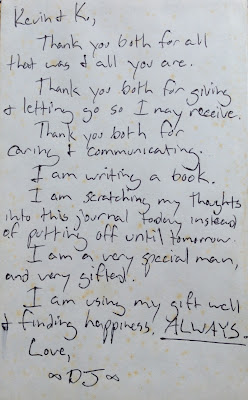 Kevin & K.,
Thank you both for all
that was & all you are.
Thank you both for giving
& letting go so I may receive.
Thank you both for
caring & communicating.
I am writing a book.
I am scratching my thoughts
into this journal today instead
of putting off until tomorrow.
I am a very special man,
and very gifted.
I am using my gift well
& finding happiness. ALWAYS.
Love,
∞ DJ ∞